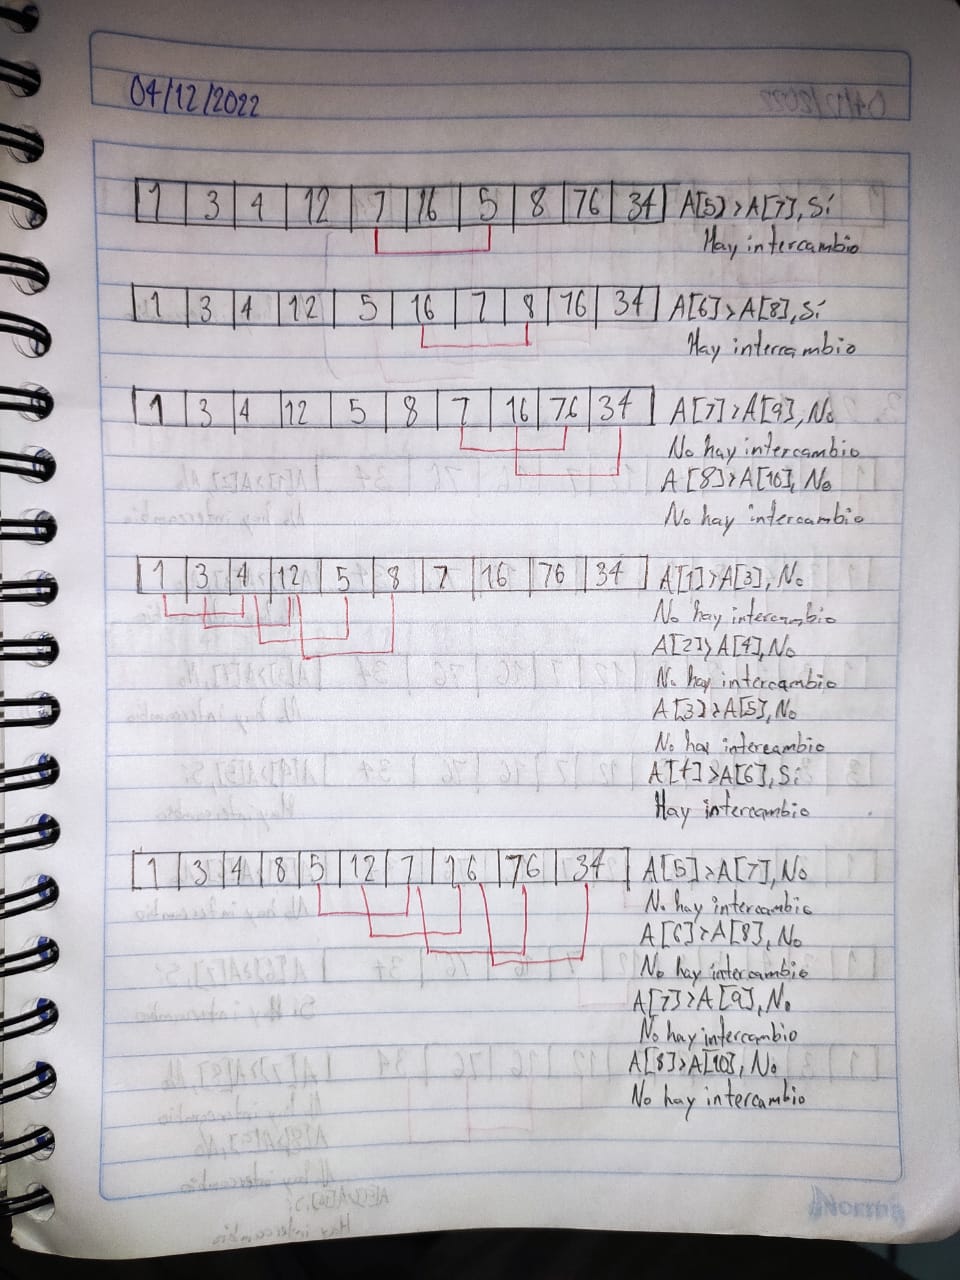 04/12/2022
1 3 4 12 7 16 5 8 76 34 A[5]>A[7], Si
Hay intercambio
1 3 4 12 5 16 7 8 76 34 A[6]>A[8], Si
Hay intercambio
1 3 4 12 5 8 7 16 76 34 A[7]>A[9], No
No hay intercambio
A[8]>A[10], No
No hay intercambio
1 3 4 12 5 8 7 16 76 34 A[1]>A[3], No
No hay intercambio
A[2]>A[4], No
No hay intercambio
A[3]>A[5], No
No hay intercambio
A[4]>A[6], Si
Hay intercambio
1 3 4 8 5 12 7 16 76 34 A[5]>A[7], No
No hay intercambio
A[6]>A[8], No
No hay intercambio
A[7]>A[9], No
No hay intercambio
A[8]>A[10], No
No hay intercambio